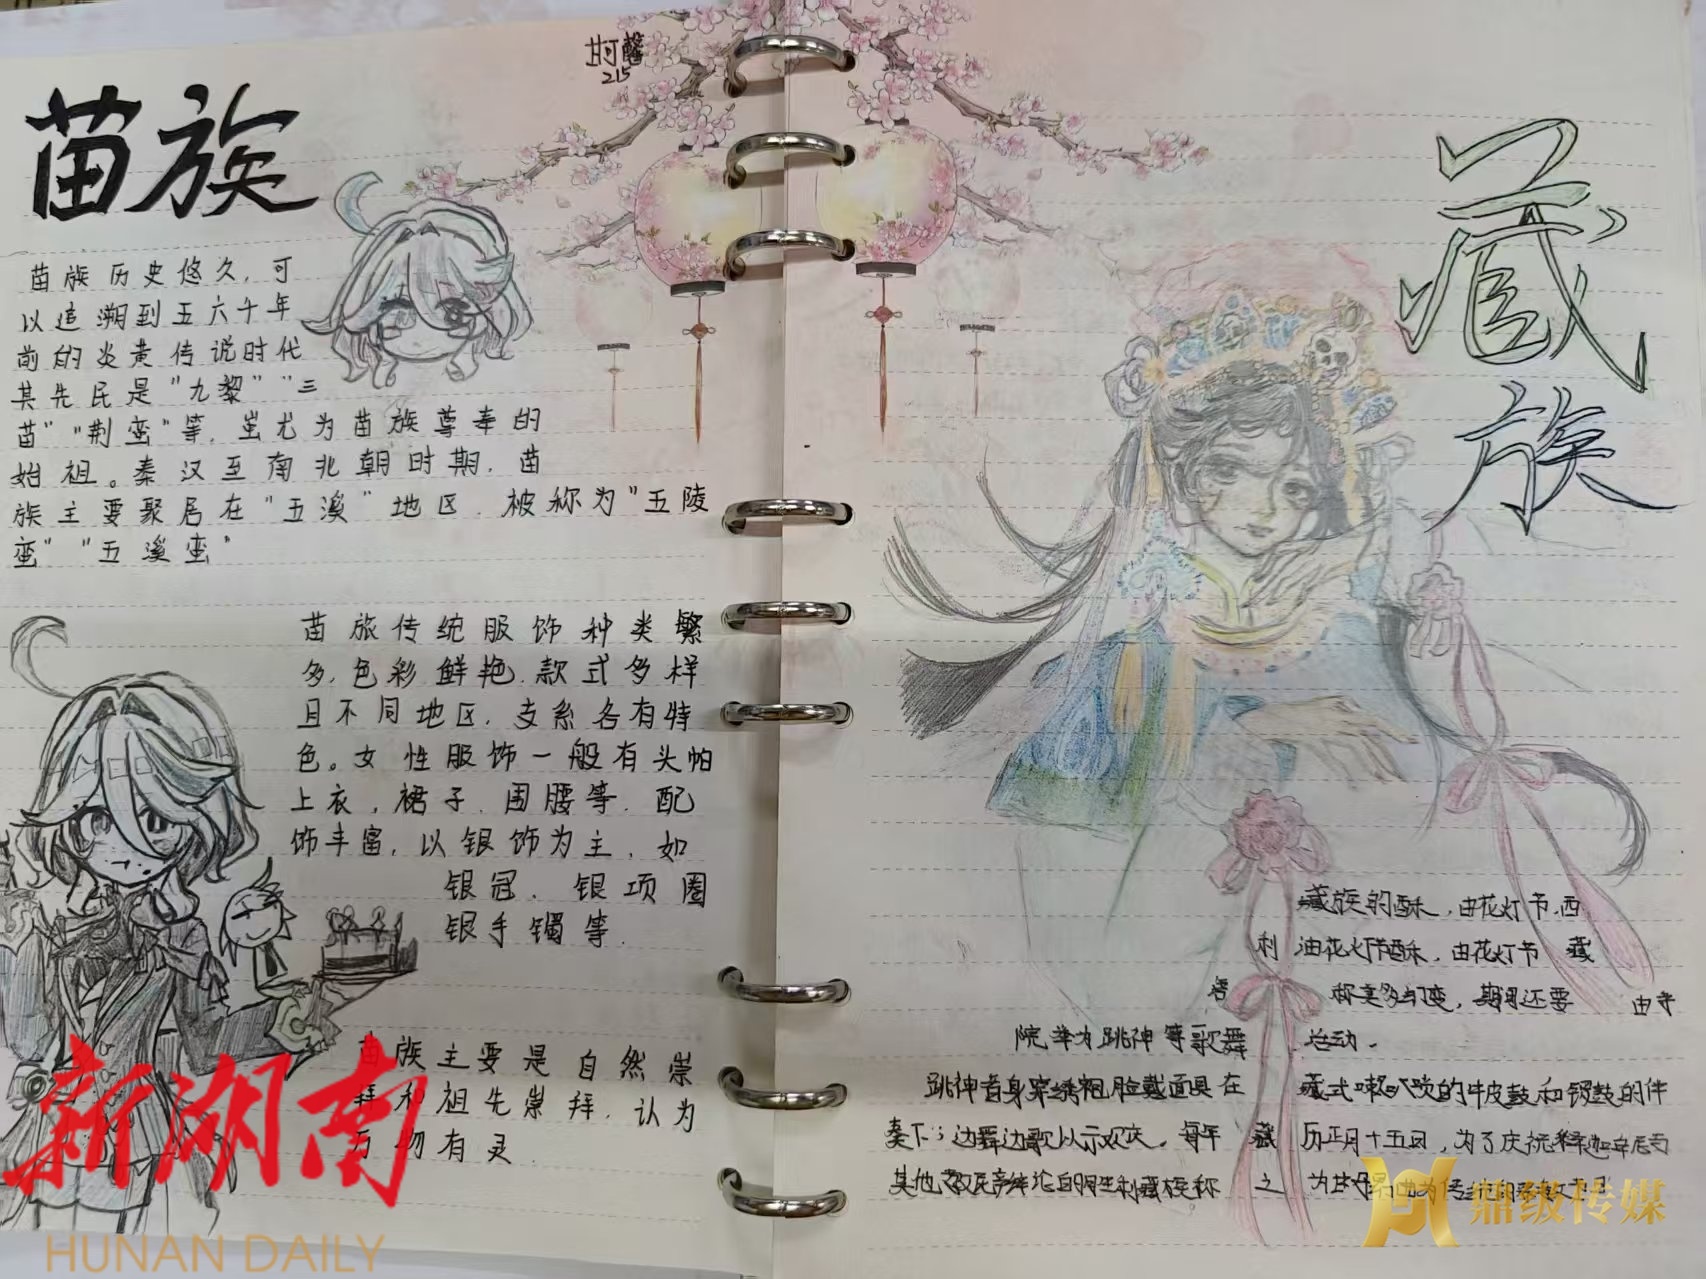 甘可馨
215
苗族
苗族历史悠久,可
以追溯到五六千年
前的炎黄传说时代
其先民是“九黎”“三
苗”“荆蛮”等,蚩尤为苗族尊奉的
始祖。秦汉至南北朝时期,苗
族主要聚居在“五溪”地区,被称为“五陵
蛮”“五溪蛮”
苗族传统服饰种类繁
多,色彩鲜艳,款式多样
且不同地区,支系各有特
色。女性服饰一般有头帕
上衣,裙子,围腰等,配
饰丰富,以银饰为主,如
银冠,银项圈
银手镯等.
苗族主要是自然崇
拜和祖先崇拜,认为
万物有灵
藏族
藏族的酥,由花灯节,西
油花灯节酥,由花灯节 藏
期间还要 由寺
院举为跳神等歌舞 活动.
跳神者身穿绣袍脸戴面具在 藏式 的牛皮鼓和钹鼓的伴
奏下;边舞边歌以示欢庆。每年 藏 历正月十五日,为了庆祝释迦牟尼
其他
新湖南
HUNAN DAILY
鼎级传媒